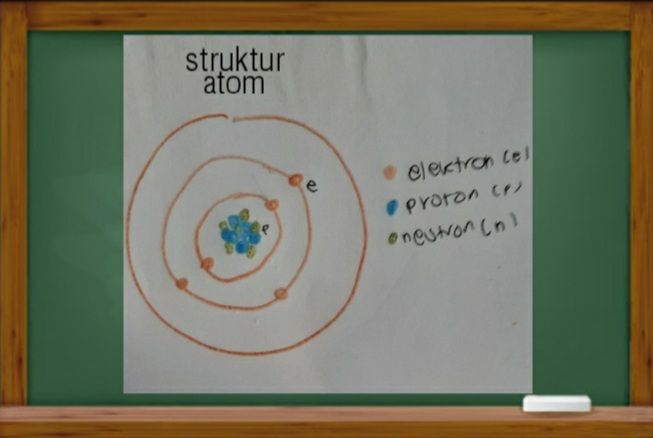 struktur
atom
e
e
elektron (e)
proton (p)
neutron (n)